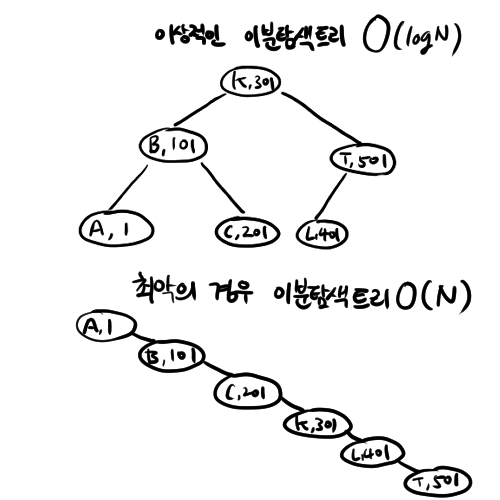 이상적인 이분탐색트리 O(logN)
K,301
B,101
T,501
A,1
C,201
L,401
최악의 경우 이분탐색트리 O(N)
A,1
B,101
C,201
K,301
L,401
T,501